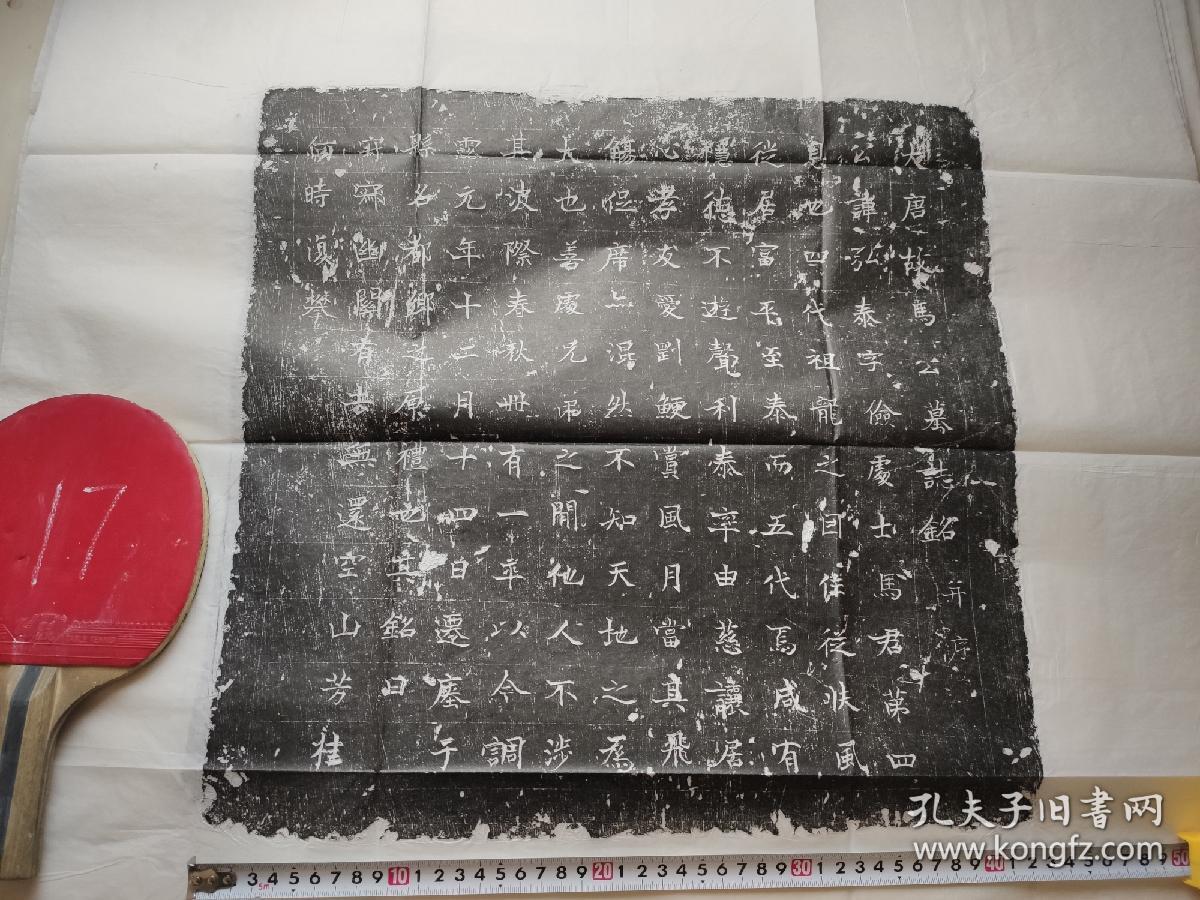 大唐故馬公墓誌銘 并序
公諱弘泰字儉處士馬君第四
息也四代祖龍之自 從扶風
從居富平至泰而五代焉咸有
德不遊聲利泰率由慈讓居
心孝友愛劉鯁賞風月當其飛
觴促席亦混然不知天地之爲
大也善處兄弟之間他人不涉
其波際春秋卌有一卒以今調
露元年十二月十四日遷塟于
縣名都鄉之原禮也其銘曰
寂寥幽關有去無還空山芳桂
何時復攀
17
3 4 5 6 7 8 9 10 1 2 3 4 5 6 7 8 9 20 1 2 3 4 5 6 7 8 9 30 1 2 3 4 5 6 7 8 9 40 1 2 3 4 5 6 7 8 9 50
5m
孔夫子旧书网
www.kongfz.com